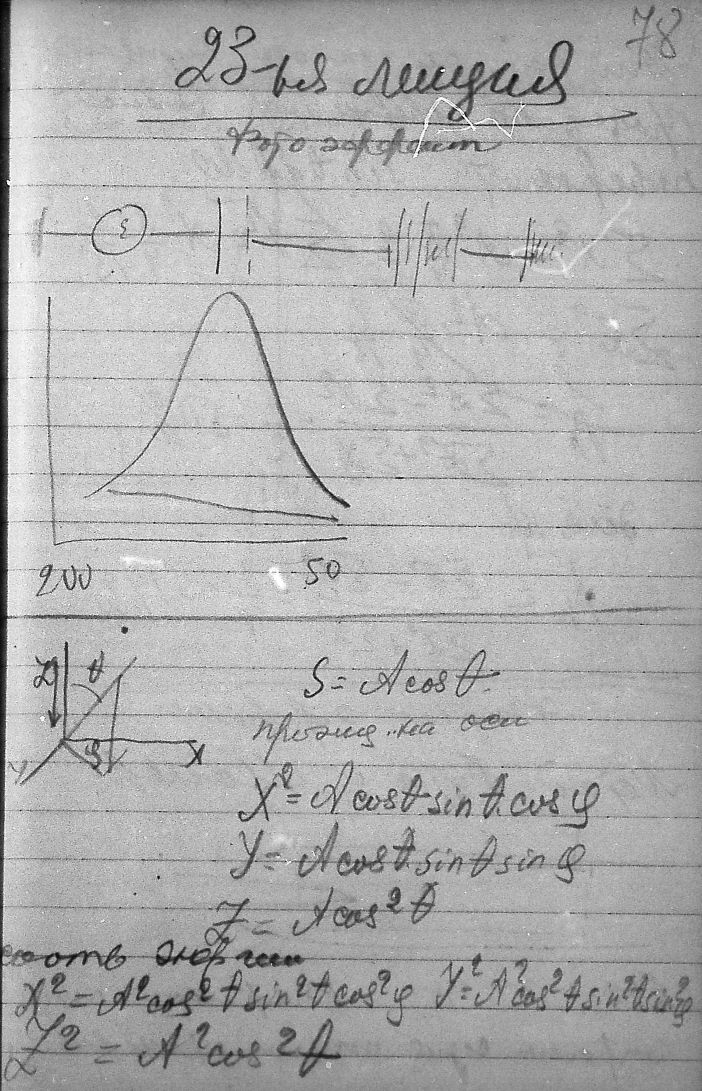 78
23-ья лекция
Фото эффект
ε
200 50
Z θ
S = A cos θ
φ X
Y
проэкц. на оси
X² = A cos θ sin θ cos φ
Y = A cos θ sin θ sin φ
Z = A cos² θ
X² = A² cos² θ sin² θ cos² φ Y² = A² cos² θ sin² θ sin² φ
Z² = A² cos² θ